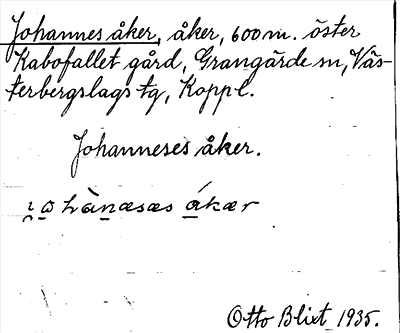 Johannes åker, åker, 600 m. öster
Kabofallet gård, Grangärde sn, Väs-
terbergslags tg, Koppl.
Johanneses åker.
Otto Blixt 1935.